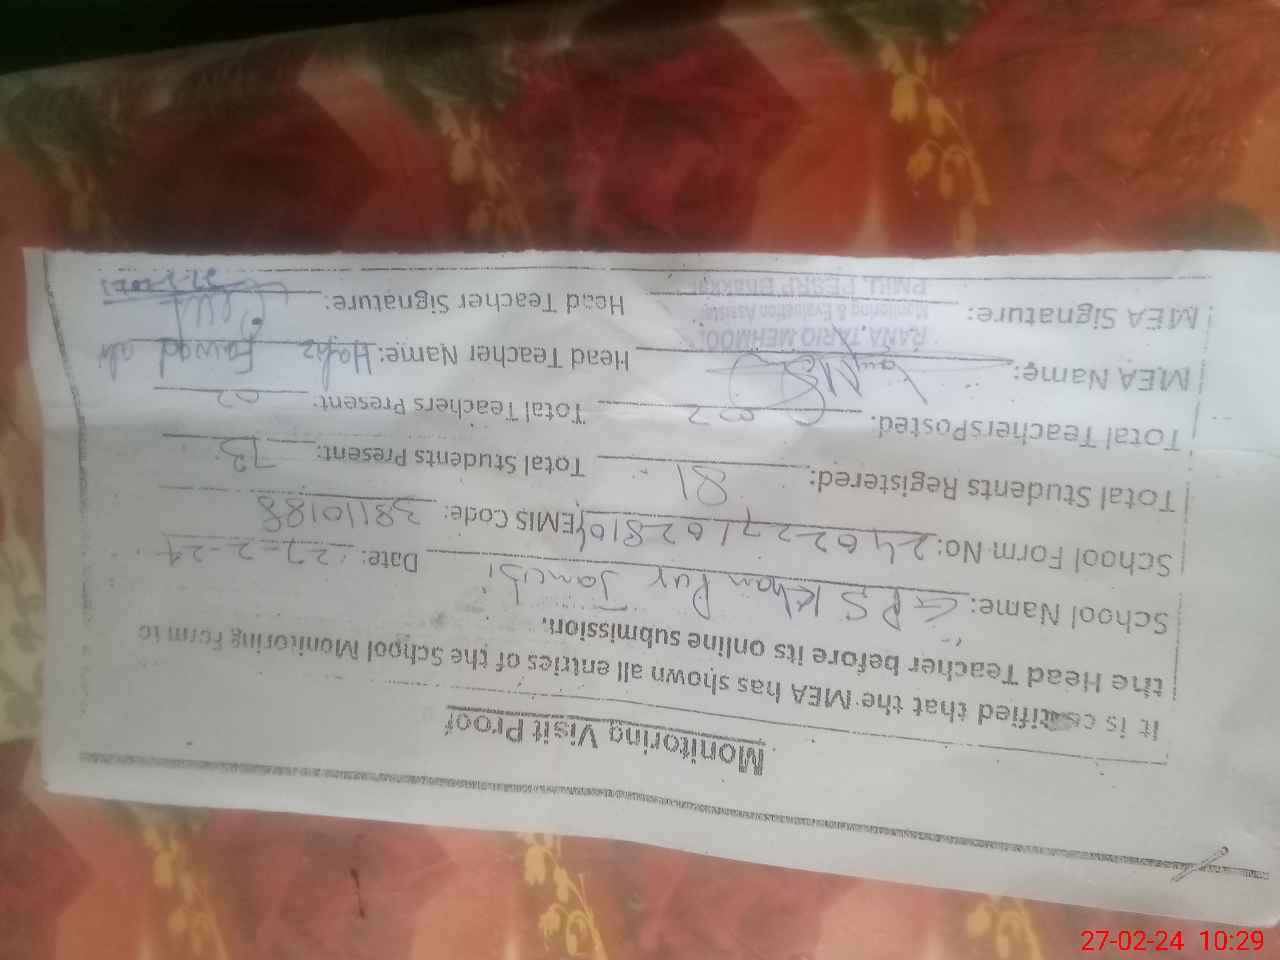 Monitoring Visit Proof
It is cetified that the MEA has shown all entries of the School Monitoring Form to
the Head Teacher before its online submission.
School Name: GPS Khan Pur Janubi Date: 27-2-24
School Form No: EMIS Code: 38110188
Total Students Registered: 81 Total Students Present: 73
Total Teachers Posted: 002 Total Teachers Present: 02
MEA Name: Head Teacher Name: Hafiz Fawad ali
RANA TARIQ MEHMOOD
Monitoring & Evaluation Assistant
PMIU, PESRP BHAKKAR
MEA Signature: Head Teacher Signature:
27-02-24 10:29